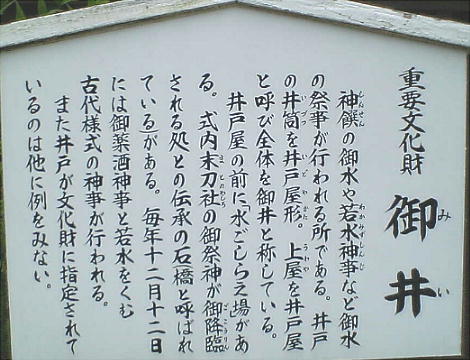 重要文化財
御井
みい
神饌の御水や若水神事など御水
しんせん
わかみずしんじ
の祭事が行われる所である。井戸
の井筒を井戸屋形。上屋を井戸屋
いづつ
いどやかた
うわや
と呼び全体を御井と称している。
井戸屋の前に水ごしらえ場があ
る。式内末刀社の御祭神が御降臨
ごこうりん
される処との伝承の石橋と呼ばれ
ている がある。毎年十二月十二日
には御薬酒神事と若水をくむ
古代様式の神事が行われる。
また井戸が文化財に指定されて
いるのは他に例をみない。